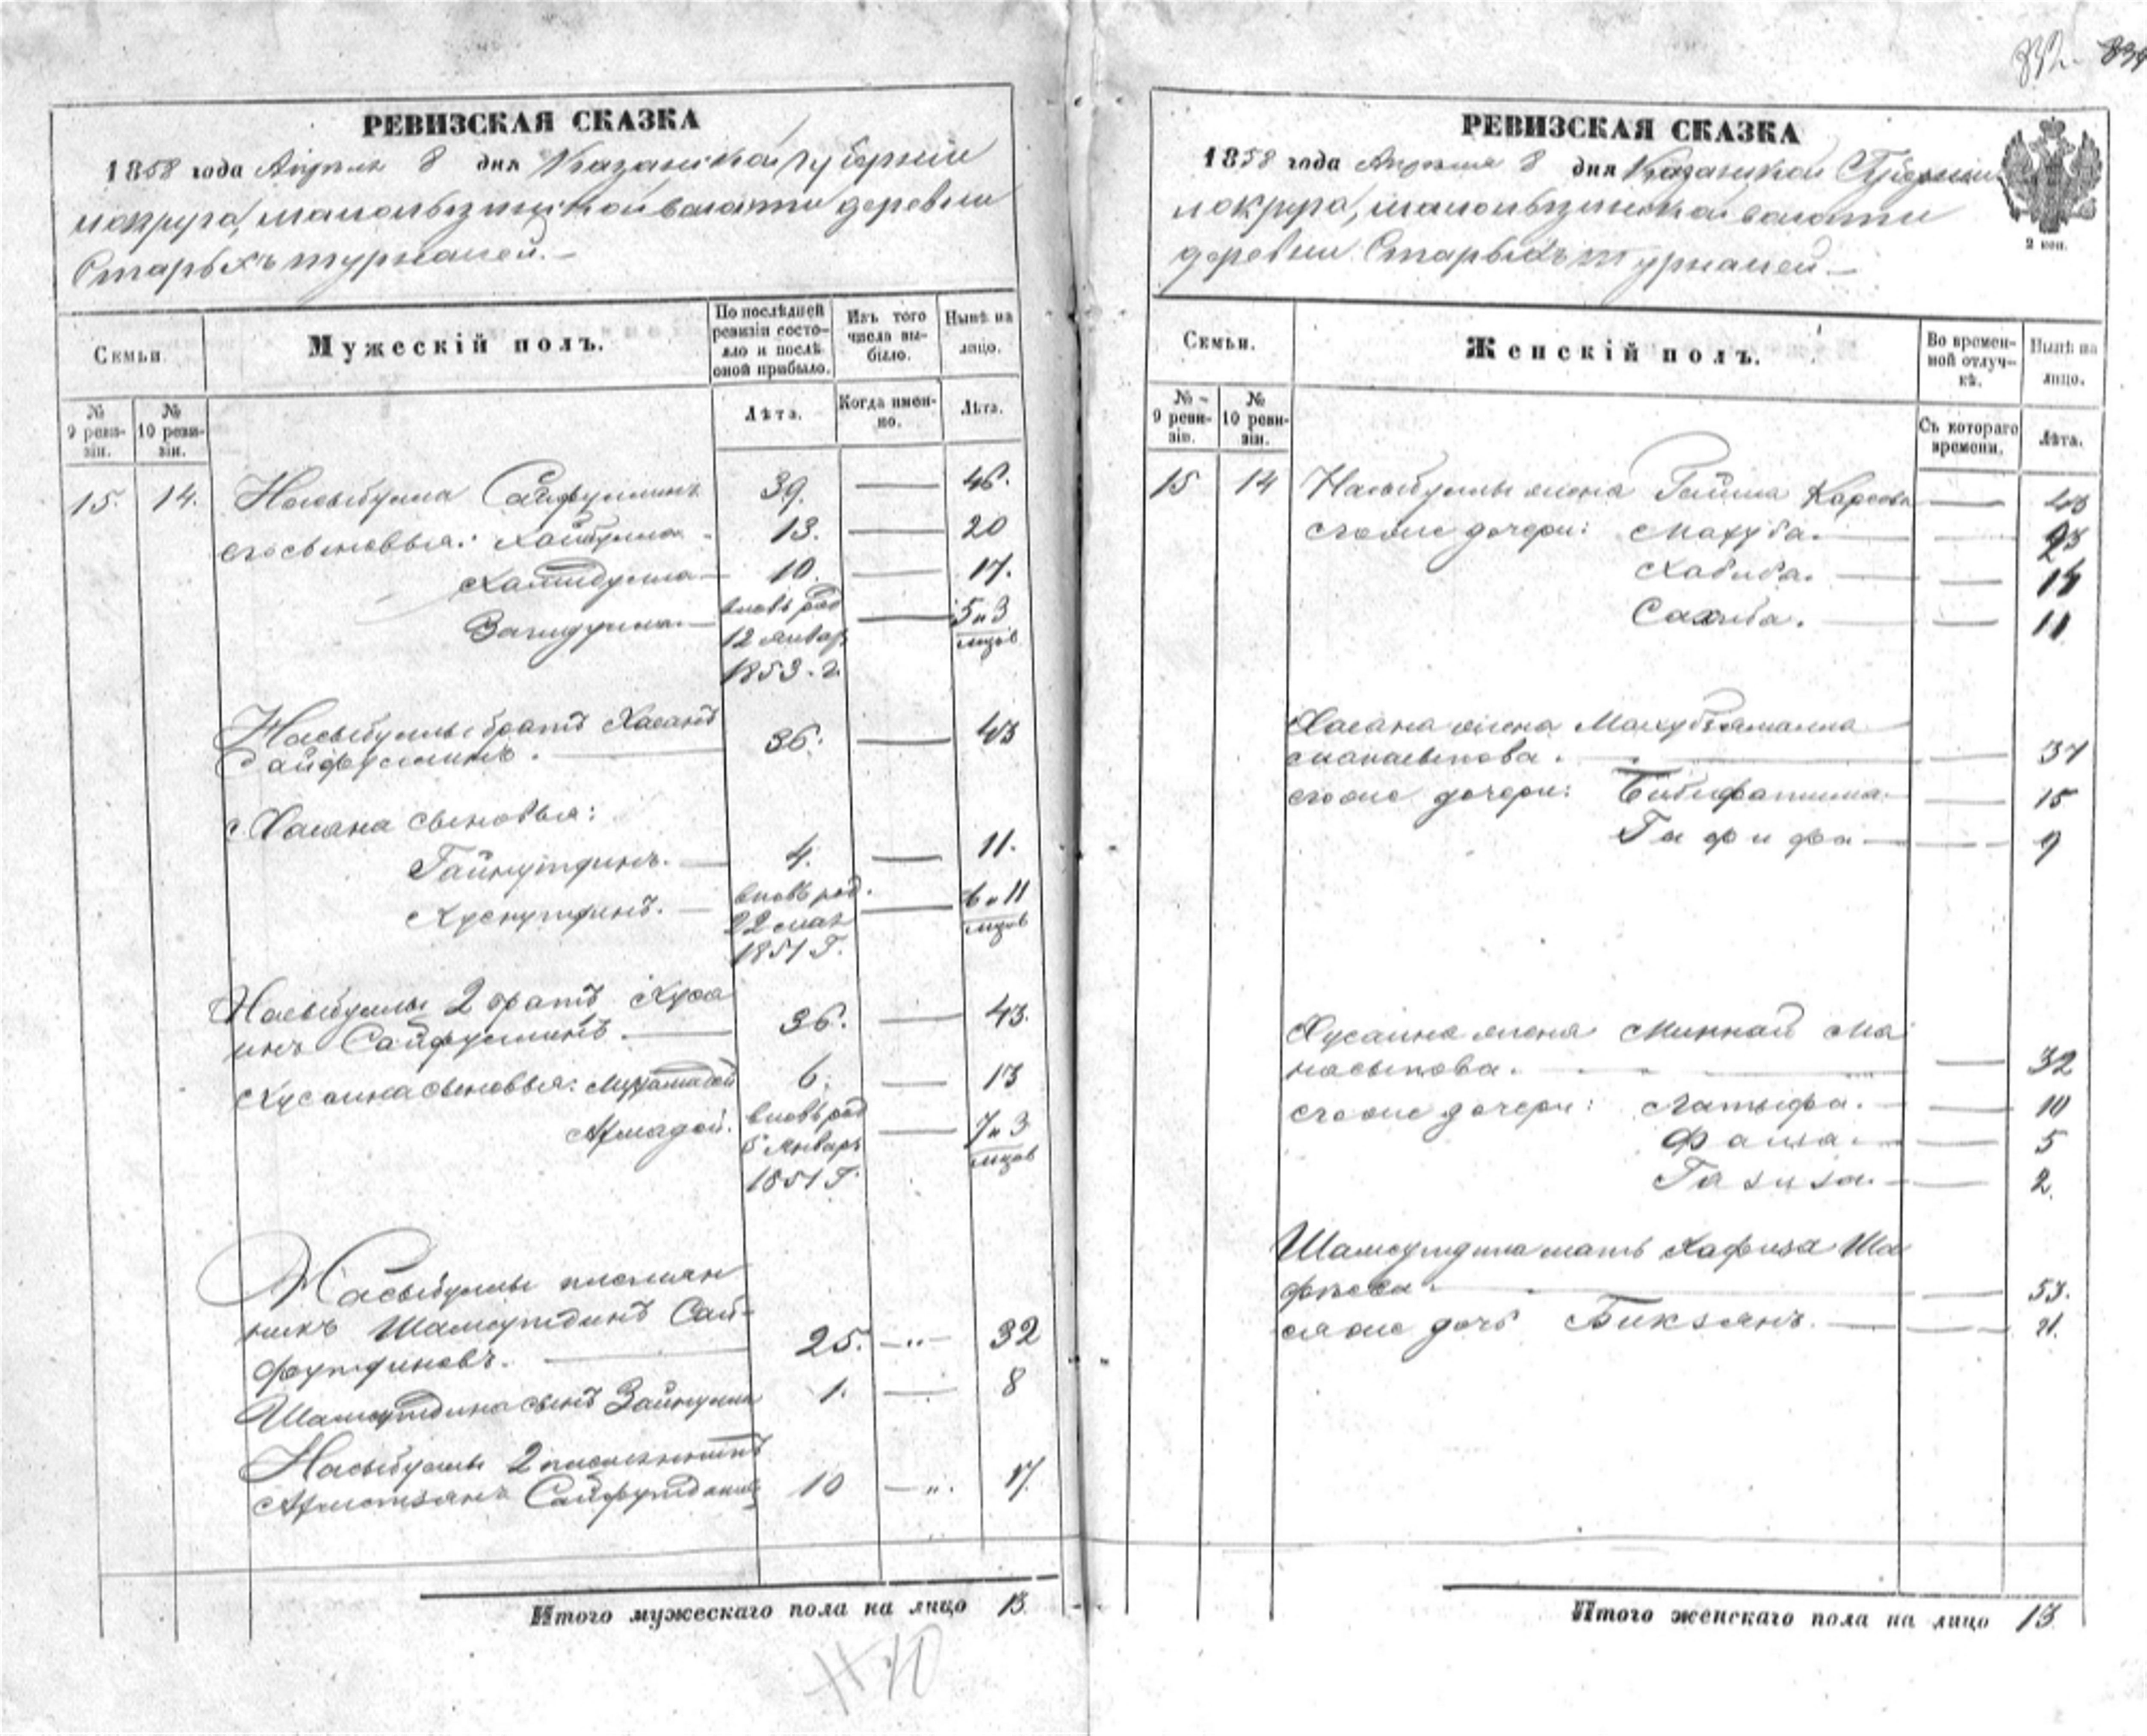 РЕВИЗСКАЯ СКАЗКА
1858 года Апреля 8 дня Казанской губернии
округа, волости деревни
Старыхъ
Семьи.
Мужескій полъ.
По послѣдней ревизіи состояло и послѣ оной прибыло.
Изъ того числа выбыло.
Нынѣ на лицо.
№ 9 ревизіи.
№ 10 ревизіи.
Лѣта.
Когда именно.
Лѣта.
15. 14. Насыбулла Сайфуллинъ 39. — 46.
его сыновья: Хайбулла 13. — 20
Хамидулла — 10. — 17.
Загидулла — вновь род 12 январ 1853. г. — 5 и 3 мцов
Насыбуллы братъ Хасанъ
Сайфуллинъ. — 36. — 43
Хасана сыновья:
Гайнутдинъ. — 4. — 11.
Хуснутдинъ. — вновь род. 22 мая 1851 г. — 6 и 11 мцов
Насыбуллы 2 братъ Хуса
инъ Сайфуллинъ. — 36. — 43.
Хусаина сыновья: 6. — 13
Ахмадей. вновь род 5 январь 1851 г. — 7 и 3 мцов
Насыбуллы племян
никъ Шамсутдинъ Сай-
футдиновъ. — 25. — „ — 32
Шамсутдина сынъ Зайнулла 1. — 8
Насыбуллы 2 племянникъ
Ахметзянъ Сайфутдиновъ 10 — „ . 17.
Итого мужескаго пола на лицо 13.
РЕВИЗСКАЯ СКАЗКА
1858 года Апреля 8 дня Казанской Губернии
округа, волости
деревни Старыхъ
2 коп.
Семьи.
Женскій полъ.
Во временной отлучкѣ.
Нынѣ на лицо.
№ 9 ревизіи.
№ 10 ревизіи.
Съ котораго времени.
Лѣта.
15 14 Насыбуллы жена — 43
его же дочери: Махуба. — 23
Хабиба. — 14
Сахиба. — 11
Хасана жена
— 37
его же дочери: Бибифатима. — 15
Гафифа — 9
Хусаина жена Миннай Ма
насыпова. — 32
его же дочери: Латыфа. — 10
— 5
Газиза. — 2.
Шамсутдина мать Хафиза Ша
фѣева. — 53.
ея же дочь Бикзянъ. — 21.
Итого женскаго пола на лицо 13